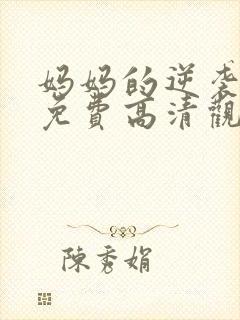 妈妈的逆袭
免費高清觀
陳秀娟